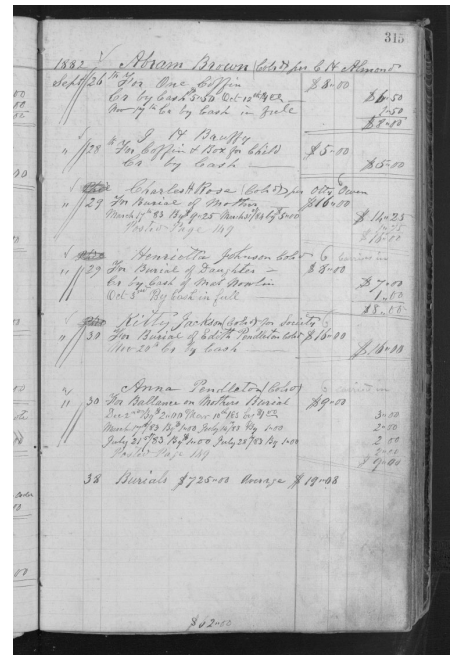 315
1882 Abram Brown (Cold) per C H Almond
Sept 26 For One Coffin $8-00
Cr by Cash $5-50 Oct 12th $6-50
Nov 7th Cr by Cash in full 1-50
$8-00
J H
" 28 For Coffin & Box for Child $5-00
Cr by Cash $5-00
Charles H Rose (Cold) per Otto Owen
" 29 For Burial of Mother $16-00
March 17th 83 By 9-25 March 31st/83 By 5-00 $14-25
Posted Page 149 $16-00
Henrietta Johnson Cold carried in
" 29 For Burial of Daughter $8-00
Cr by Cash of Mat Newlin $7-00
Oct 3rd By Cash in full 1-00
$8-00
Kitty Jackson (Cold) for Society
" 30 For Burial of Edith Pendleton Cold $16-00
Nov 20th Cr by Cash $16-00
Anna Pendleton (Cold) carried in
" 30 For Ballance on Mothers Burial $9-00
Dec 2nd By $2-00 Mar 10th/83 by $1 3-00
March 17/83 By 1-00 July 14/83 By 1-00 2-00
July 21st/83 By 1-00 July 28/83 By 1-00 2-00
Posted Page 149 $9-00
38 Burials $725-00 Average $19-08
$42-00